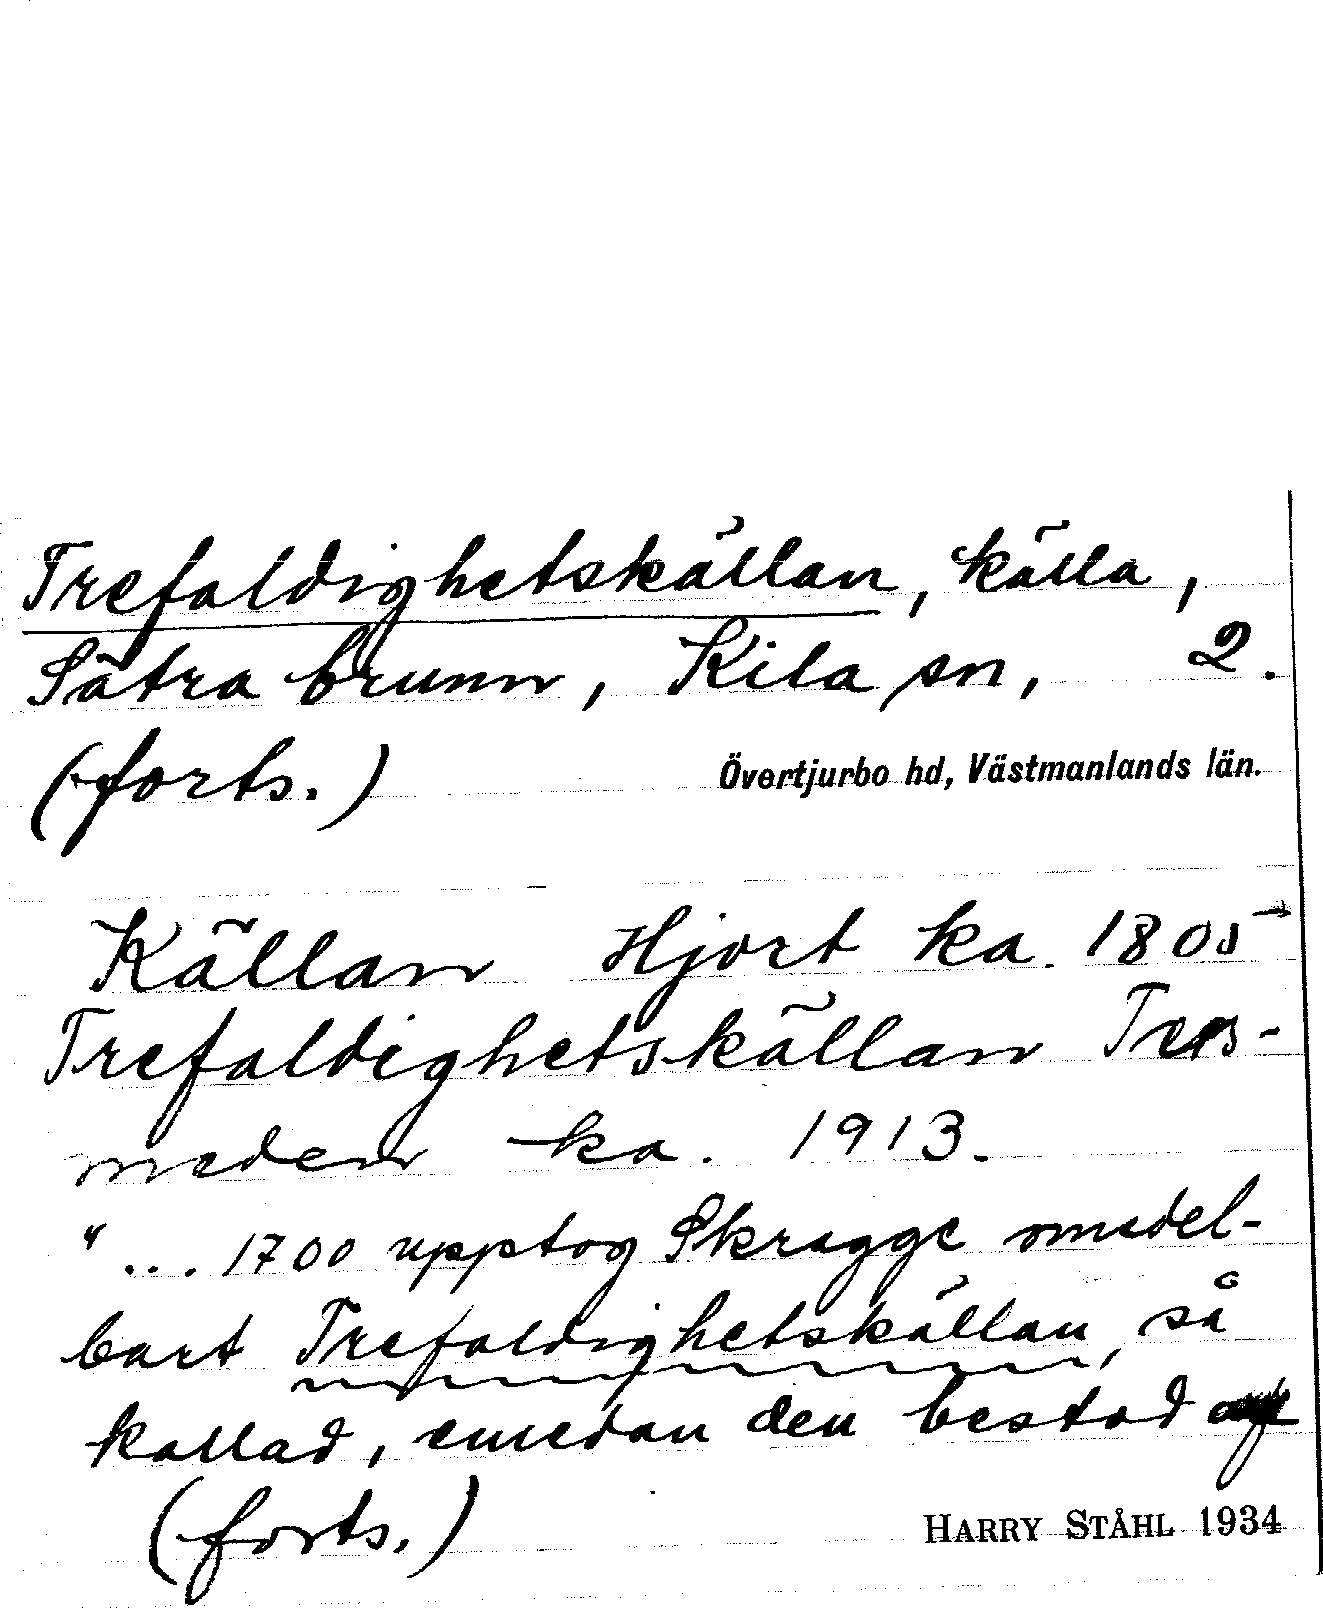 Trefaldighetskällan, källa,
Sätra brunn, Kila sn, 2.
(forts.)
Övertjurbo hd, Västmanlands län.
Källan Hjort ka. 1805
Trefaldighetskällan Ters-
meden ka. 1913.
"... 1700 upptog Skragge medel-
bart Trefaldighetskällan, så
kallad, emedan den bestod af
(forts.)
HARRY STÅHL 1934